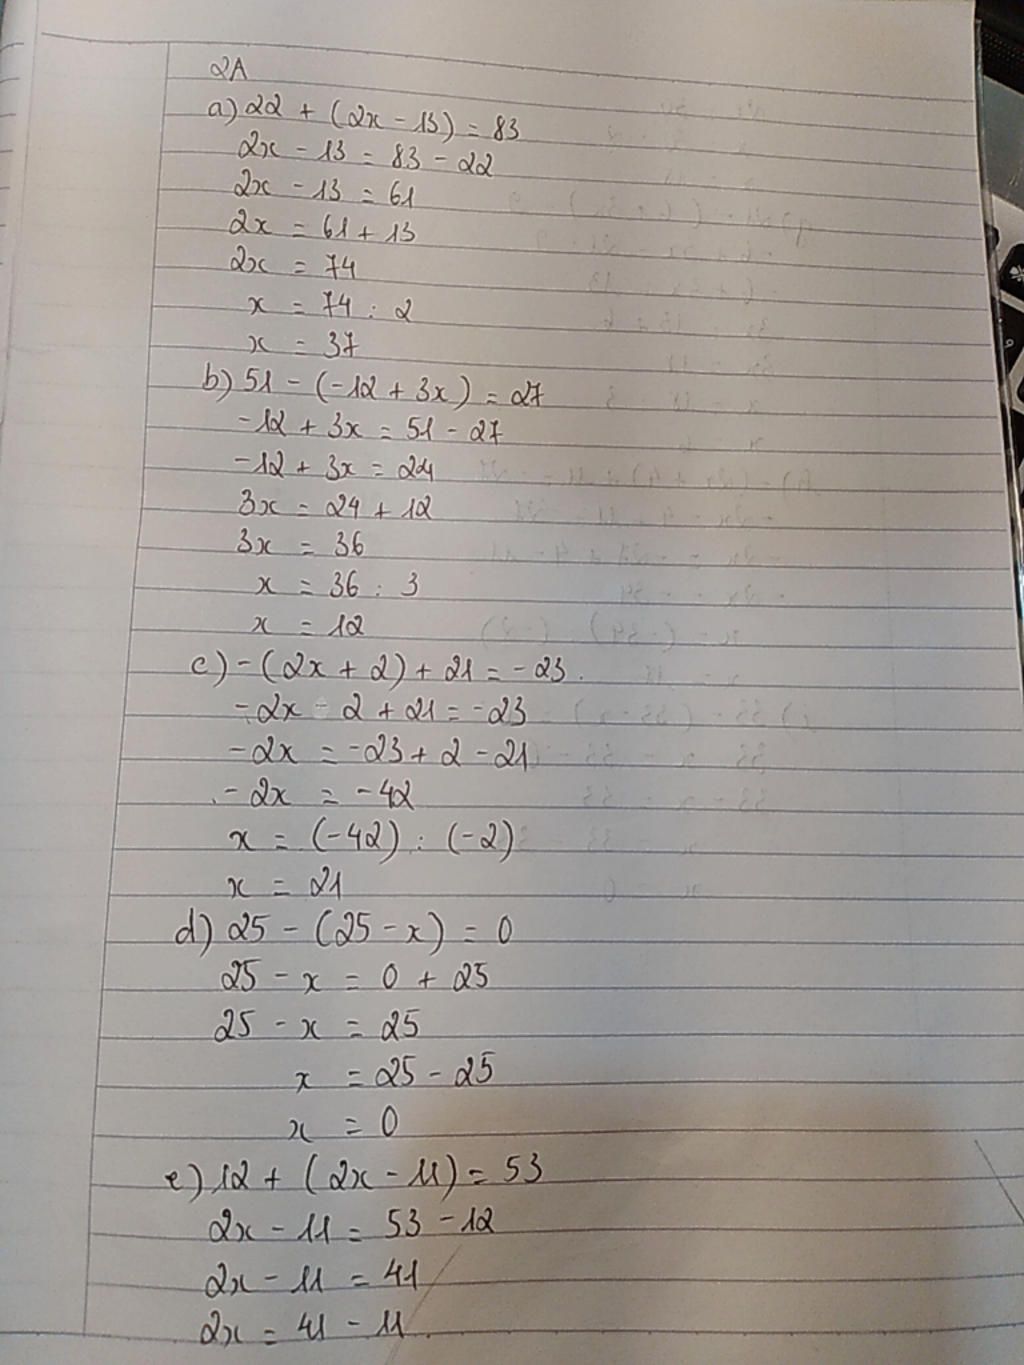 2A
a) 22 + (2x - 13) = 83
2x - 13 = 83 - 22
2x - 13 = 61
2x = 61 + 13
2x = 74
x = 74 : 2
x = 37
b) 51 - (-12 + 3x) = 27
-12 + 3x = 51 - 27
-12 + 3x = 24
3x = 24 + 12
3x = 36
x = 36 : 3
x = 12
c) - (2x + 2) + 21 = -23.
-2x - 2 + 21 = -23
-2x = -23 + 2 - 21
-2x = -42
x = (-42) : (-2)
x = 21
d) 25 - (25 - x) = 0
25 - x = 0 + 25
25 - x = 25
x = 25 - 25
x = 0
e) 12 + (2x - 11) = 53
2x - 11 = 53 - 12
2x - 11 = 41
2x = 41 - 11